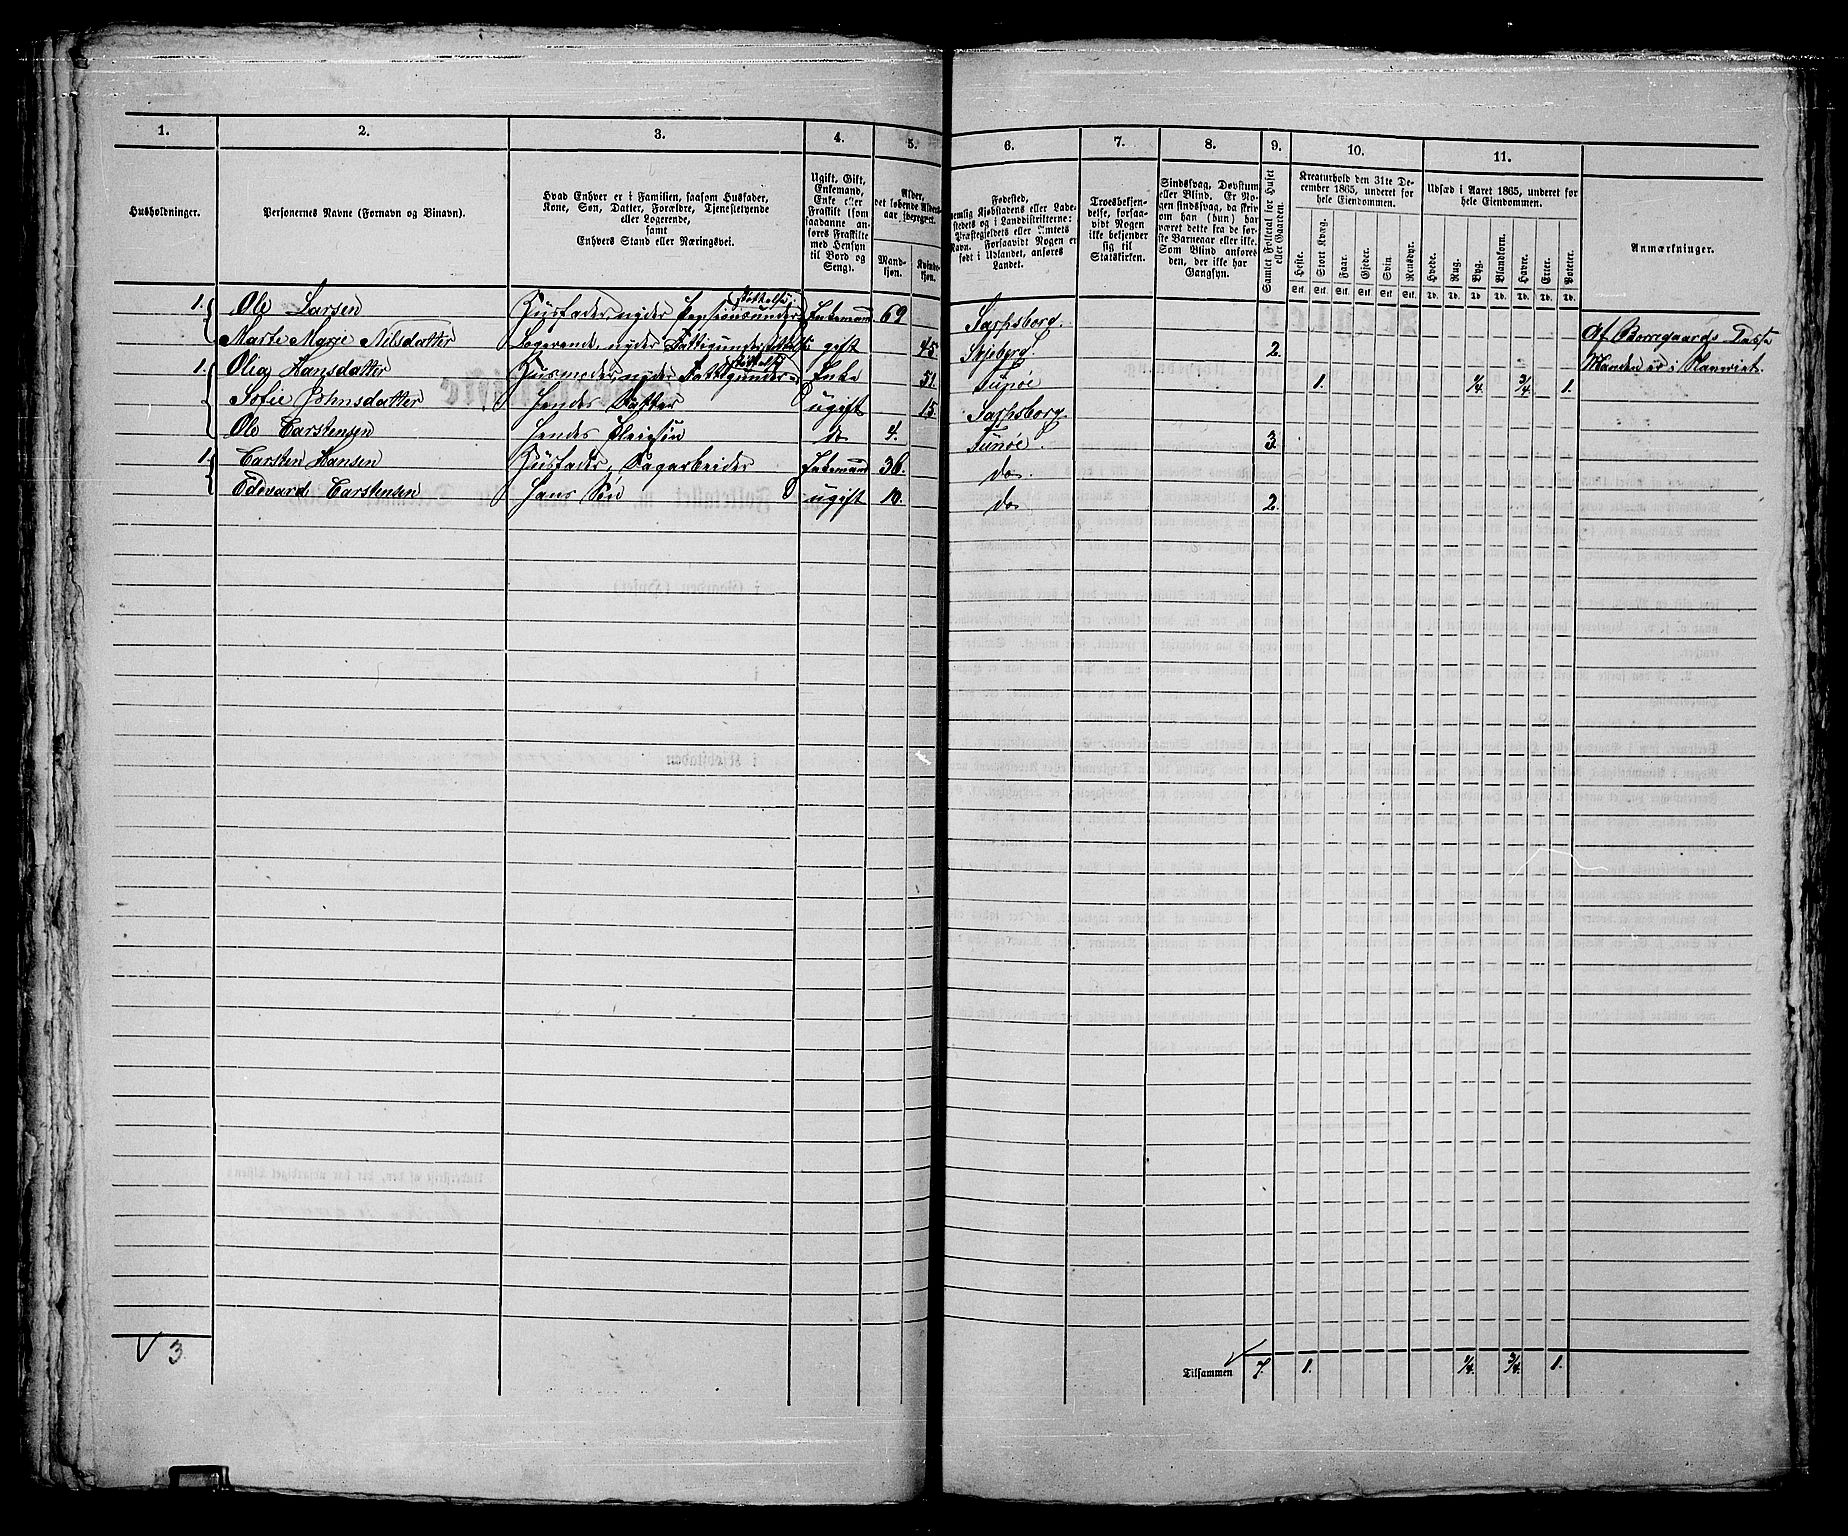 1. 2. 3. 4. 5. 6. 7. 8. 9. 10. 11.
Husholdninger.
Personernes Navne (Fornavn og Binavn).
Hvad Enhver er i Familien, saasom Husfader,
Kone, Søn, Datter, Forældre, Tjenestetyende
eller Logerende,
samt
Enhvers Stand eller Næringsvei.
Ugift, Gift,
Enkemand,
Enke eller
Fraskilt (som
saadanne an-
føres Fraskilte
med Hensyn
til Bord og
Seng).
Alder,
det løbende Alders-
aar iberegnet.
Mand-
kjøn.
Kvinde-
kjøn.
Fødested,
nemlig Kjøbstadens eller Lade-
stedets og i Landdistrikterne:
Præstegjeldets eller Amtets
Navn. Forsaavidt Nogen er
født i Udlandet, anføres
Landet.
Troesbekjen-
delse, forsaa-
vidt Nogen
ikke bekjender
sig til
Statskirken.
Sindssvag, Døvstum
eller Blind. Er No-
gen sindssvag, da skriv
om han (hun) har
været dette fra de før-
ste Barneaar eller ikke.
Som Blind anføres
den, der ikke har
Gangsyn.
Samlet Folketal for Huset
eller Gaarden.
Kreaturhold den 31te De-
cember 1865, underet for
hele Eiendommen.
Heste. Stort Kvæg. Faar. Gjeder. Svin. Rensdyr.
Stk. Stk. Stk. Stk. Stk. Stk.
Udsæd i Aaret 1865, underet for
hele Eiendommen.
Hvede. Rug. Byg. Blandkorn. Havre. Erter. Poteter.
Td. Td. Td. Td. Td. Td. Td.
Anmærkninger.
1. Ole Larsen Husfader, nyder Pensionsunderstøttelse. Enkemand 69 Sarpsborg. Af Borregaards
Marte Marie Nilsdatter Logerende, nyder Fattigunderstøttelse gift 45. Skjeberg. 2. Manden er i
1. Oleg Hansdatter Husmoder, nyder Fattigunderstøttelse Enke 51. Tunøe 1. 1/4. 3/4. 1.
Sofie Johnsdatter Hendes Datter ugift 15 Sarpsborg.
Ole Carstensen Hendes Pleiesøn do 4. Tunøe. 3.
1. Carsten Hansen Husfader, Sagarbeider Enkemand 36. do.
Edevard Carstensen Hans Søn ugift 10. do 2.
3
Tilsammen 7. 1. 1/4. 3/4. 1.